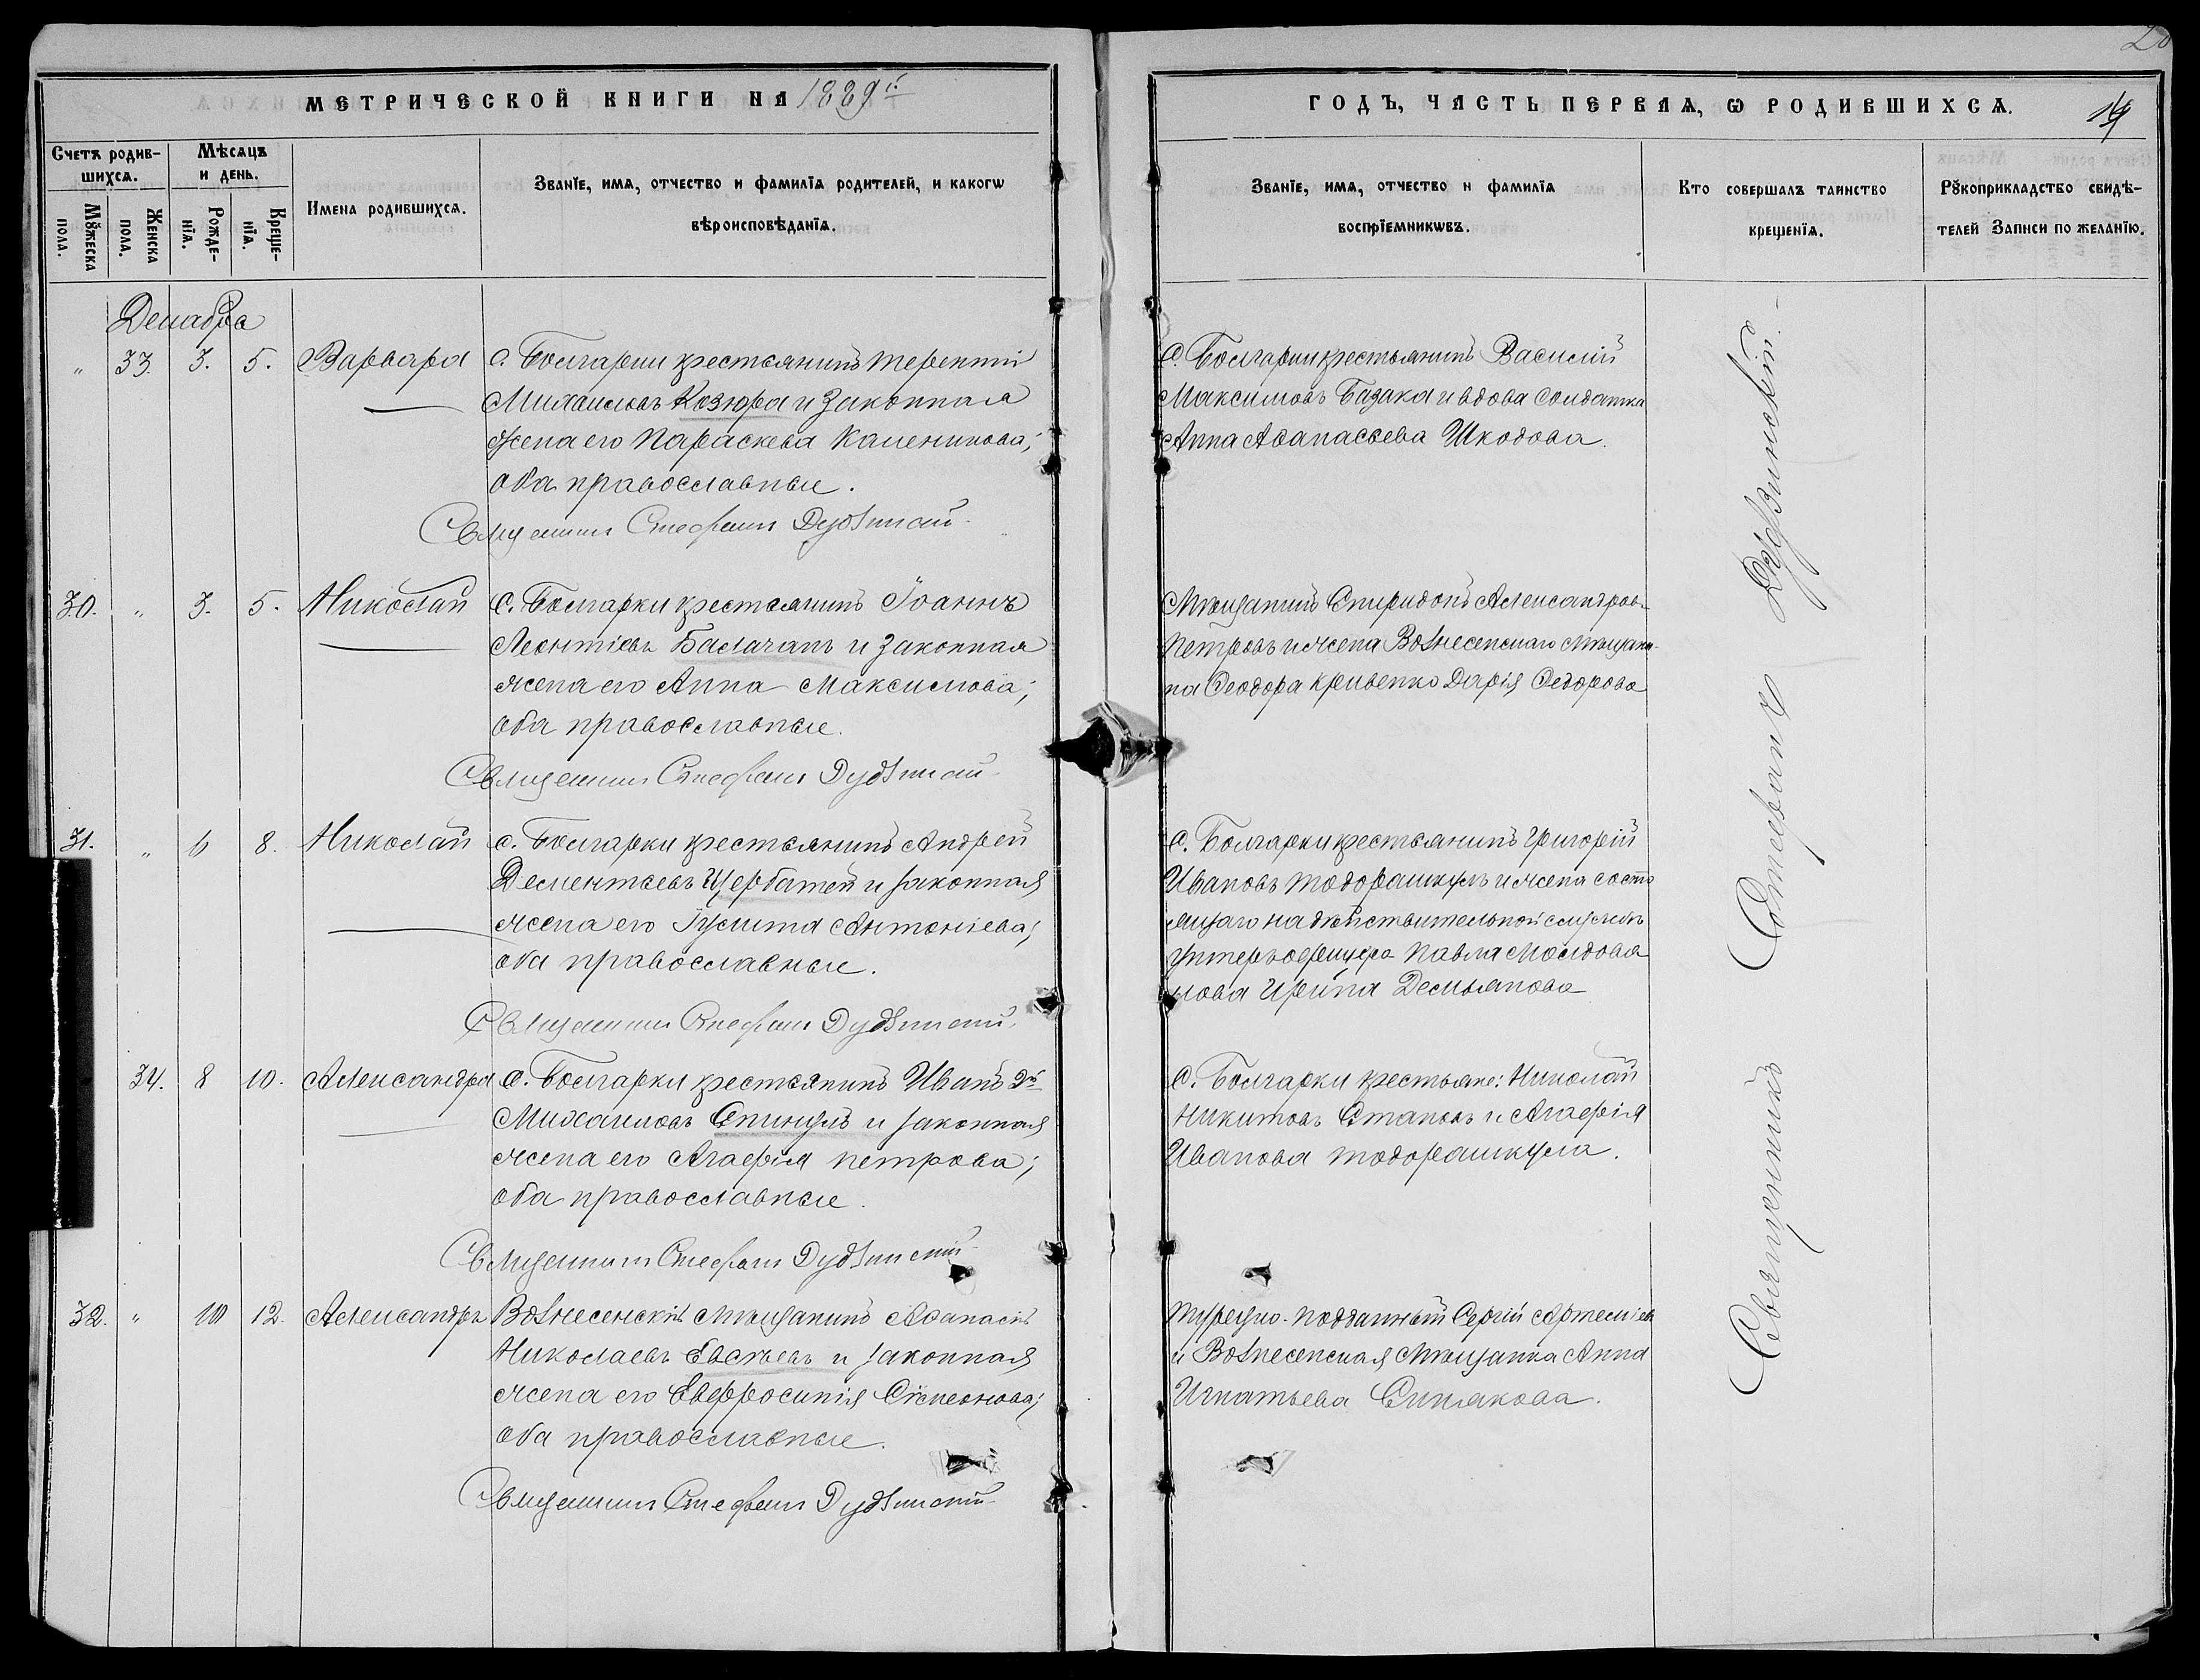 20
МЕТРИЧЕСКОЙ КНИГИ НА 1889й
ГОДЪ, ЧАСТЬ ПЕРВАЯ, Ѡ РОДИВШИХСѦ.
19
Счетъ родив-
шихсѧ.
Мѣсѧцъ
и день.
Мꙋжеска
пола.
Женска
пола.
Рожде-
нїѧ.
Креще-
нїѧ.
Имена родившихсѧ.
Званїе, имѧ, отчество и фамилїѧ родителей, и какогѡ
вѣроисповѣданїѧ.
Званїе, имѧ, отчество и фамилїѧ
воспрїемникѡвъ.
Кто совершалъ таинство
крещенїѧ.
Рꙋкоприкладство свидѣ-
телей Записи по желанїю.
Декабрь
" 33. 3. 5. Варвара
с. Болгарки крестьянинъ Терентій
Михаиловъ Козюра и законная
жена его Параскева Каленикова;
оба православные.
Священникъ Стефанъ Дудзинскій
С. Болгарки крестьянинъ Василій
Максимовъ Базака и вдова солдатка
Анна Аѳанасьева Шкодова.
30. " 3. 5. Николай
С. Болгарки крестьянинъ Іоаннъ
Леонтіевъ Балачанъ и законная
жена его Анна Максимова;
оба православные.
Священникъ Стефанъ Дудзинскій
Мѣщанинъ Спиридонъ Александров.
Петровъ и жена Вознесенскаго мѣщани-
на Ѳеодора Кривенко Дарія Ѳедорова
31. " 6 8. Николай
с. Болгарки крестьянинъ Андрей
Дементьевъ Щербатей и законная
жена его Іулита Антоніева;
оба православные.
Священникъ Стефанъ Дудзинскій
С. Болгарки крестьянинъ Григорій
Ивановъ Тодорашкулъ и жена состо
ящаго на дѣйствительной службѣ
унтеръ-офицера Павла Молдова
нова Ирина Демьянова
34. 8 10. Александра
С. Болгарки крестьянинъ Иванъ 2й
Михаиловъ Спинулъ и законная
жена его Агафія Петрова;
оба православные.
Священникъ Стефанъ Дудзинскій
С. Болгарки крестьяне: Николай
Никитовъ Становъ и Агафія
Иванова Тодорашкула.
32. " 10 12. Александръ
Вознесенскій мѣщанинъ Аѳанасій
Николаевъ Евсѣевъ и законная
жена его Евфросинія Симеонова;
оба православные.
Священникъ Стефанъ Дудзинскій
Турецко-подданный Сергій Артеміевъ
и Вознесенская мѣщанка Анна
Игнатьева Синякова.
Священникъ Стефанъ Дудзинскій.